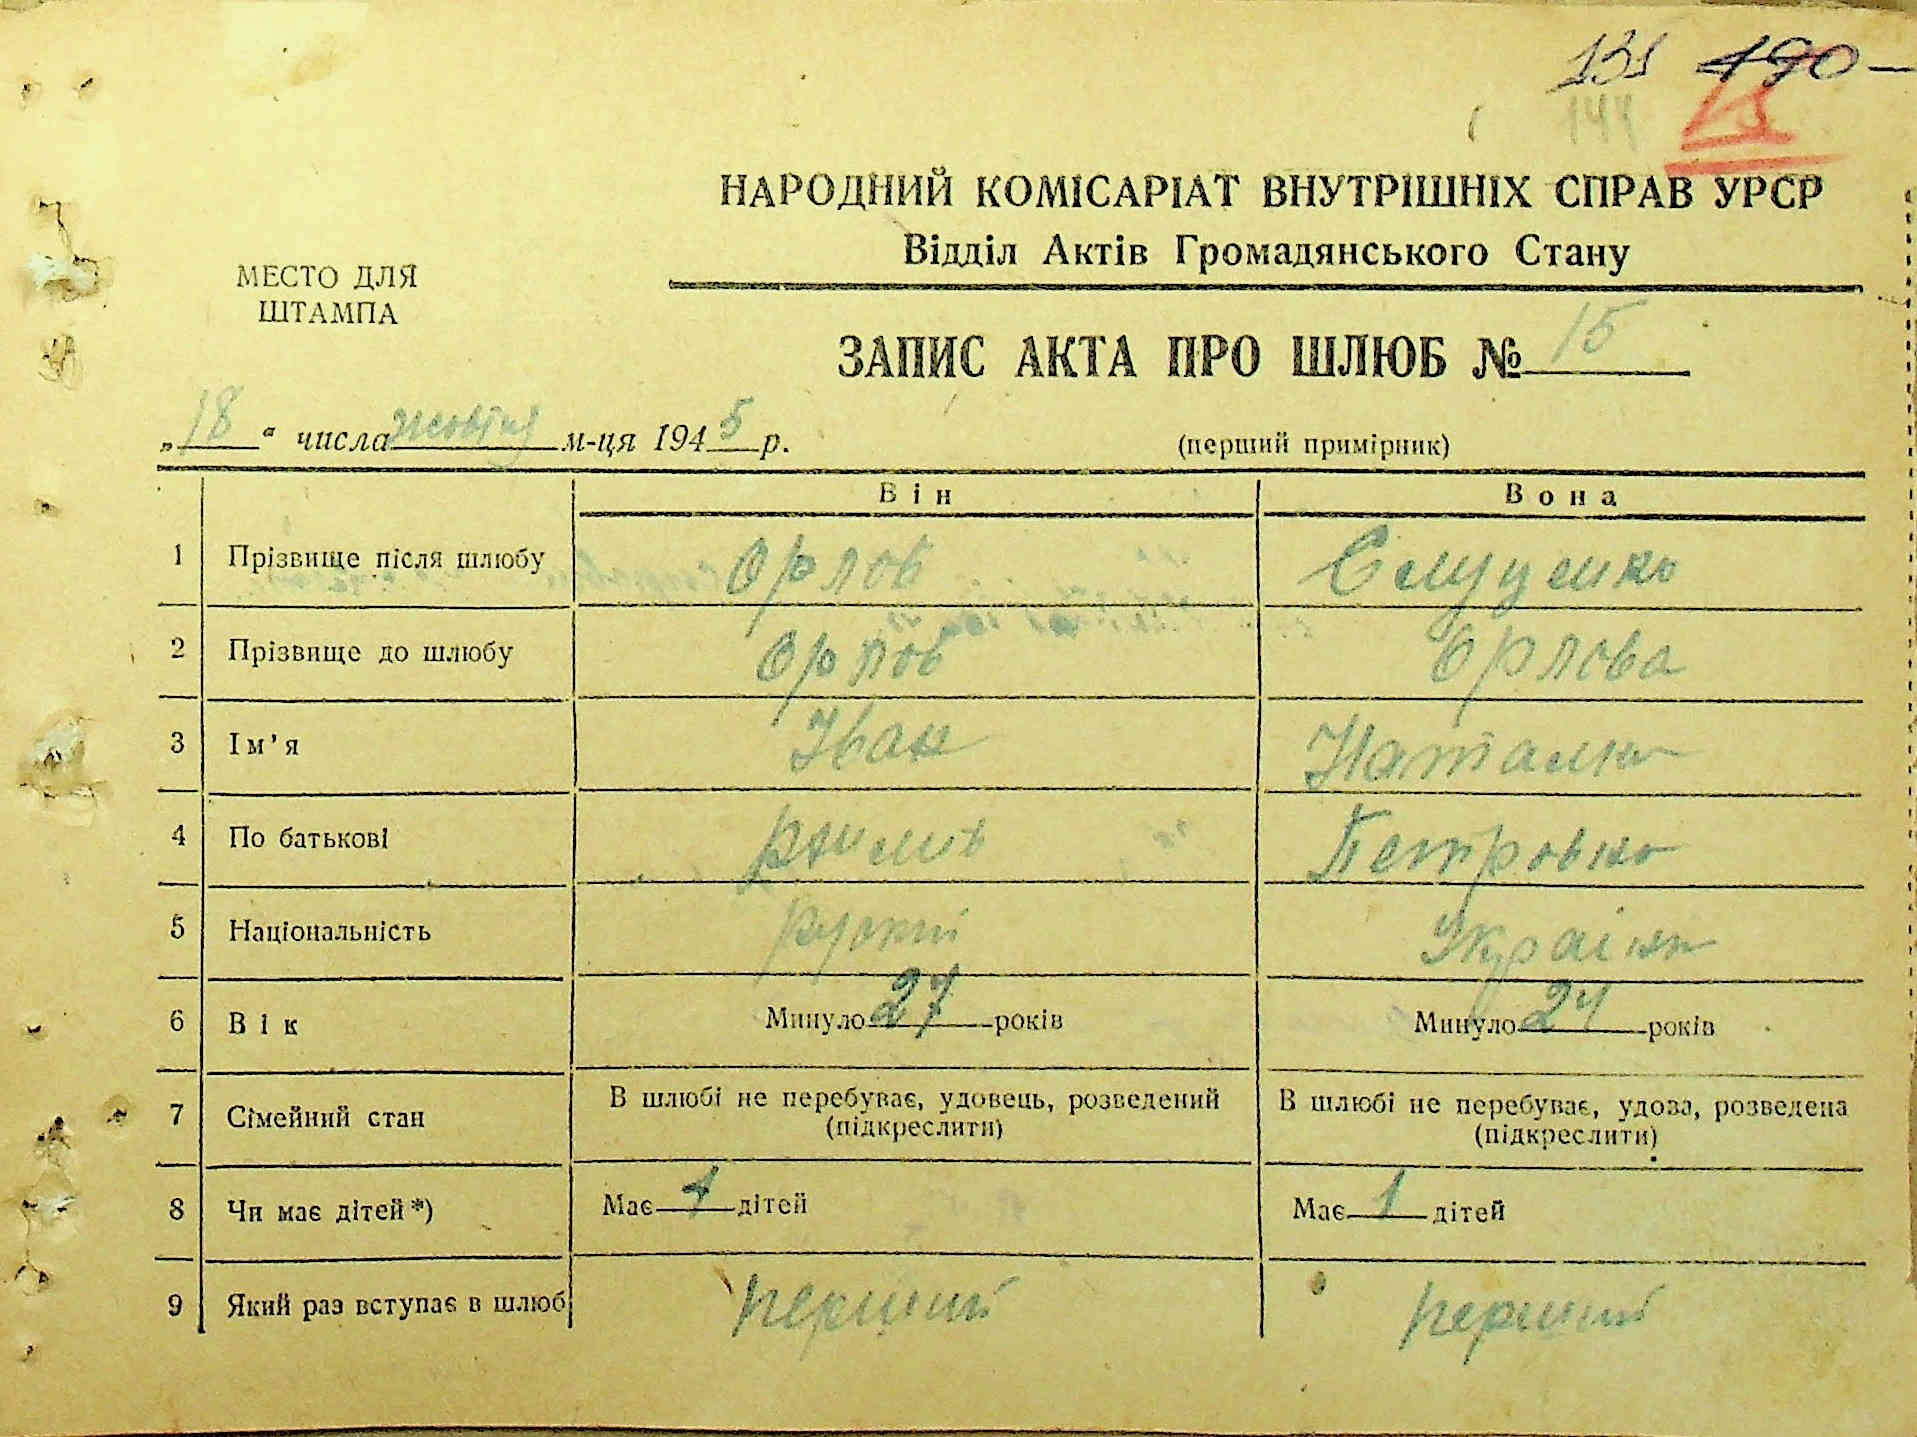 131 190 —
144
НАРОДНИЙ КОМІСАРІАТ ВНУТРІШНІХ СПРАВ УРСР
Відділ Актів Громадянського Стану
МЕСТО ДЛЯ
ШТАМПА
ЗАПИС АКТА ПРО ШЛЮБ № 15
„18“ числа жовтня м-ця 1945 р.
(перший примірник)
Він Вона
1 Прізвище після шлюбу Орлов
2 Прізвище до шлюбу Орлов Орлова
3 Ім'я Іван Наталка
4 По батькові Петровна
5 Національність руский Українка
6 Вік Минуло 27 років Минуло 24 років
7 Сімейний стан В шлюбі не перебуває, удовець, розведений В шлюбі не перебуває, удова, розведена
(підкреслити) (підкреслити)
8 Чи має дітей*) Має 1 дітей Має 1 дітей
9 Який раз вступає в шлюб перший перший